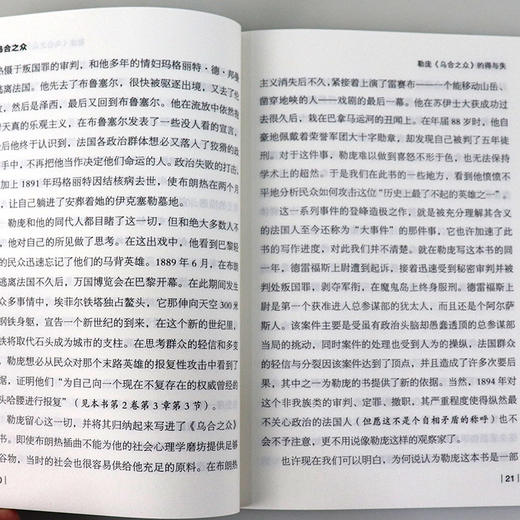 乌合之众
热慑于叛国罪的审判，和他多年的情妇玛格丽特·德·邦
逃离法国。他去了布鲁塞尔，很快被驱逐出境，又去了伦
然后是泽西，最后又回到布鲁塞尔。他在流放中依然抱
天真的乐观主义，在布鲁塞尔发表了一些没人看的宣言，
后他终于认识到，法国各政治群体想必又落入了狡猾的
手中，不再把他当作决定他们命运的人。政治失败的打击，
加上1891年玛格丽特因结核病去世，使布朗热在两个月
，让自己躺进了安葬着她的伊克塞勒墓地。
勒庞和他的同代人都目睹了这一切，但和绝大多数人不
，他对自己的所见做了思考。在这出戏中，他看到巴黎轻
的民众迅速忘记了他们的马背英雄。1889年6月，在布朗
逃离法国不久后，万国博览会在巴黎开幕。在此期间出现
众多事情中，埃菲尔铁塔独占鳌头，它那伸向天空300米
钢铁身躯，宣告一个新世纪的到来，在这个新的世纪里，
铁将取代石头成为城市的支柱。在思考群众的轻信和多变
，勒庞想必从民众对那个末路英雄的报复性攻击中看到了
据，证明他们“为自己向一个现在不复存在的权威曾经的
头哈腰进行报复”（见本书第2卷第3章第3节）。
勒庞留心这一切，并将其归纳起来写进了《乌合之众》
即使布朗热插曲不能为他的社会心理学磨坊提供足够
谷物，当时的社会也很容易供给他充足的原料。在布朗热
勒庞《乌合之众》的得与失
主义消失后不久，紧接着上演了雷赛布——个能移动山岳、
凿穿地峡的人——戏剧的最后一幕。他在苏伊士大获成功过
去很久后，栽在巴拿马运河的丑闻上。在年届88岁时，他自
豪地佩戴着荣誉军团大十字勋章，却发现自己被判了五年徒
刑。对于这件事，勒庞难以做到喜怒不形于色，也无法保持
学术上的超然。于是我们在此书的一些地方，看到他愤愤不
平地分析民众如何攻击这位“历史上最了不起的英雄之一”。
这一系列事件的登峰造极之作，就是被充分理解其含义
的法国人至今还称为“大事件”的那件事情。它是否加速了此
书的写作进度，对此我们并不清楚。就在勒庞写这本书的同一
年，德雷福斯上尉遭到起诉，接着迅速受到秘密审判并被
判处叛国罪，剥夺军衔，在魔鬼岛上终身服刑。德雷福斯上
尉是第一个进入总参谋部的犹太人，而且还是个阿尔萨
斯人。该案件主要是受虽有政治头脑却愚蠢透顶的总参谋部
当局的挑动，同时案件的处理也受到人为的操纵，法国群众
的轻信与分裂因该案件达到了顶点，并且造成了许多次要后
果，其中之一为勒庞的书提供了新的依据。当然，1894年对
这个非我族类的审判、定罪、撤职，其严重程度使得纵然最
不关心政治的法国人（但愿这不是个自相矛盾的称呼）也不
会不予注意，更不用说像勒庞这样的观察家了。
也许现在我们可以明白，为何说认为勒庞这本书是一部
21